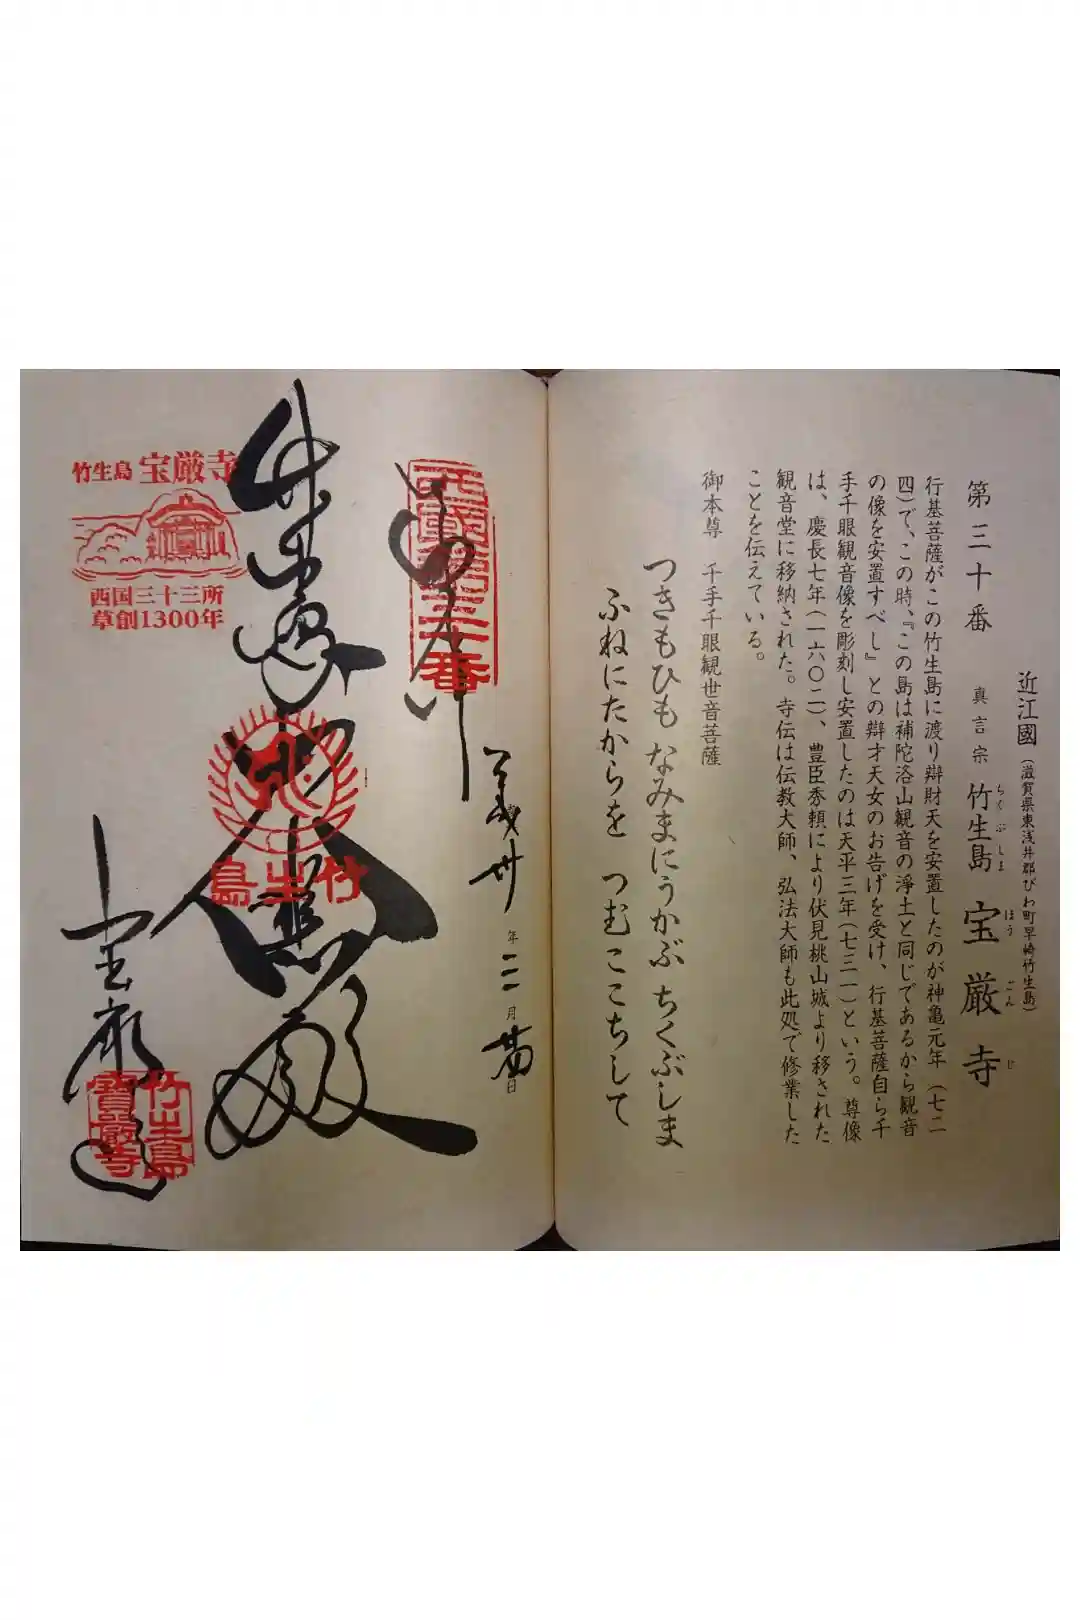 近江國(滋賀県東浅井郡びわ町早崎竹生島)
第三十番 真言宗 竹生島 宝厳寺
ちくぶしま ほうごんじ
行基菩薩がこの竹生島に渡り辯財天を安置したのが神亀元年(七二
四)で、この時、『この島は補陀洛山観音の淨土と同じであるから観音
の像を安置すべし』との辯才天女のお告げを受け、行基菩薩自ら千
手千眼観音像を彫刻し安置したのは天平三年(七三一)という。尊像
は、慶長七年(一六〇二)、豊臣秀頼により伏見桃山城より移された
観音堂に移納された。寺伝は伝教大師、弘法大師も此処で修業した
ことを伝えている。
御本尊 千手千眼観世音菩薩
つきもひも なみまにうかぶ ちくぶしま
ふねにたからを つむここちして
年二月日
西國第三十番
竹生島
竹生島 宝厳寺
西国三十三所
草創1300年
竹生島
寶嚴寺